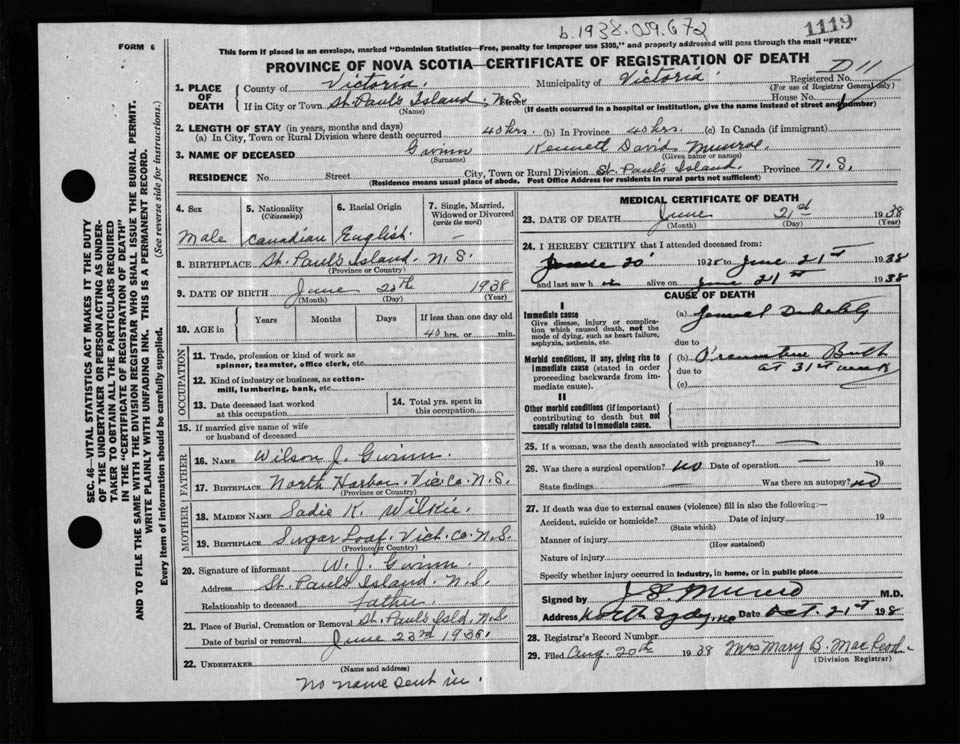 b. 1938. 059. 672
1119
FORM 6
This form if placed in an envelope, marked "Dominion Statistics—Free, penalty for improper use $300," and properly addressed will pass through the mail "FREE"
PROVINCE OF NOVA SCOTIA—CERTIFICATE OF REGISTRATION OF DEATH
D11
1. PLACE OF DEATH
County of Victoria. Municipality of Victoria. Registered No.
(For use of Registrar General only)
If in City or Town St. Paul's Island, N.S. House No.
(Name) (If death occurred in a hospital or institution, give the name instead of street and number)
2. LENGTH OF STAY (in years, months and days)
(a) In City, Town or Rural Division where death occurred 40 hrs. (b) In Province 40 hrs. (c) In Canada (if immigrant)
3. NAME OF DECEASED Gwinn Kenneth David Munroe.
(Surname) (Given name or names)
RESIDENCE No. Street City, Town or Rural Division St. Paul's Island. Province N.S.
(Residence means usual place of abode. Post Office Address for residents in rural parts not sufficient)
4. Sex 5. Nationality (Citizenship) 6. Racial Origin 7. Single, Married, Widowed or Divorced (write the word)
Male Canadian English. —
8. BIRTHPLACE St. Paul's Island. N.S.
(Province or Country)
9. DATE OF BIRTH June 20th 1938
(Month) (Day) (Year)
10. AGE in Years Months Days If less than one day old
40 hrs. or min.
OCCUPATION
11. Trade, profession or kind of work as spinner, teamster, office clerk, etc.
12. Kind of industry or business, as cotton-mill, lumbering, bank, etc.
13. Date deceased last worked at this occupation
14. Total yrs. spent in this occupation
15. If married give name of wife or husband of deceased
FATHER
16. NAME Wilson J. Gwinn.
17. BIRTHPLACE North Harbor. Vic. Co. N.S.
(Province or Country)
MOTHER
18. MAIDEN NAME Sadie K. Wilkie.
19. BIRTHPLACE Sugar Loaf. Vict. Co. N.S.
(Province or Country)
20. Signature of informant W. J. Gwinn.
Address St. Paul's Island. N.S.
Relationship to deceased father.
21. Place of Burial, Cremation or Removal St. Paul's Isld. N.S.
Date of burial or removal June 23rd 1938.
22. UNDERTAKER
(Name and address)
No name sent in.
MEDICAL CERTIFICATE OF DEATH
23. DATE OF DEATH June 21st 1938
(Month) (Day) (Year)
24. I HEREBY CERTIFY that I attended deceased from:
June 20 1938 to June 21st 1938
and last saw h alive on June 21st 1938
CAUSE OF DEATH
I
Immediate cause
Give disease, injury or complication which caused death, not the mode of dying, such as heart failure, asphyxia, asthenia, etc.
(a) General Debility
due to
Morbid conditions, if any, giving rise to immediate cause (stated in order proceeding backwards from immediate cause).
(b) Premature Birth
due to at 31st week
(c)
II
Other morbid conditions (if important) contributing to death but not causally related to immediate cause.
25. If a woman, was the death associated with pregnancy? —
26. Was there a surgical operation? no Date of operation — 19
State findings — Was there an autopsy? no
27. If death was due to external causes (violence) fill in also the following:—
Accident, suicide or homicide? Date of injury 19
(State which)
Manner of injury
(How sustained)
Nature of injury
Specify whether injury occurred in industry, in home, or in public place
Signed by M.D.
Address North Sydney, NS Date Oct. 21st 1938
28. Registrar's Record Number
29. Filed Aug. 20th 1938 Mrs Mary B. MacLeod
(Division Registrar)
SEC. 46—VITAL STATISTICS ACT MAKES IT THE DUTY
OF THE UNDERTAKER OR PERSON ACTING AS UNDER-
TAKER TO OBTAIN ALL THE PARTICULARS REQUIRED
IN THE "CERTIFICATE OF REGISTRATION OF DEATH"
AND TO FILE THE SAME WITH THE DIVISION REGISTRAR WHO SHALL ISSUE THE BURIAL PERMIT.
WRITE PLAINLY WITH UNFADING INK. THIS IS A PERMANENT RECORD.
Every item of information should be carefully supplied. (See reverse side for instructions.)